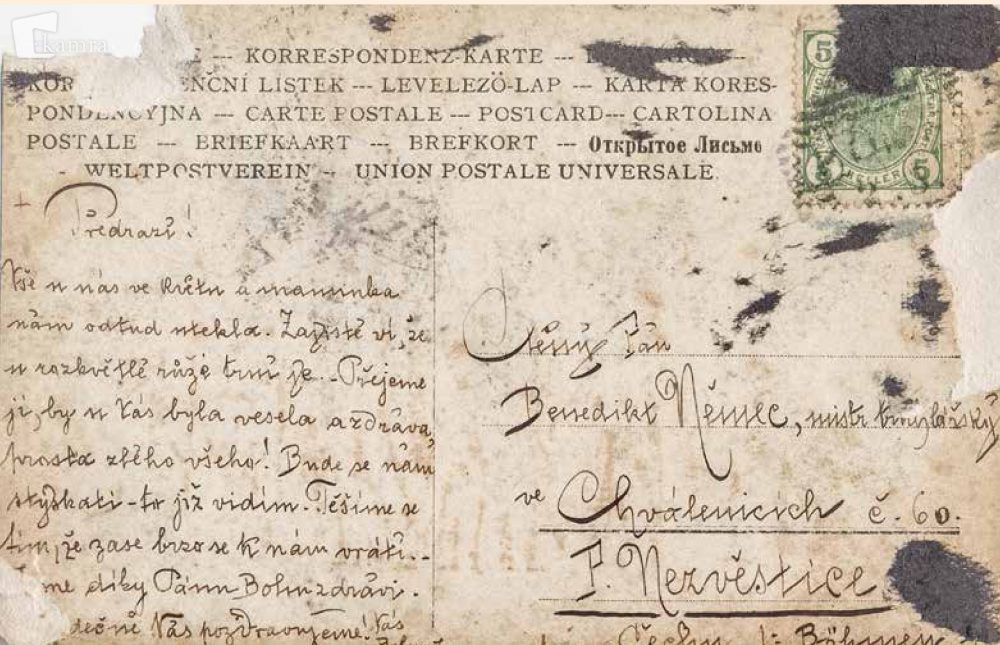 kamra
-- KORRESPONDENZ-KARTE --
LISTEK --- LEVELEZÖ-LAP --- KARTA KORES-
PONDENCYJNA --- CARTE POSTALE --- POSTCARD--- CARTOLINA
POSTALE --- BRIEFKAART --- BREFKORT --- Открытое Письмо
- WELTPOSTVEREIN -- UNION POSTALE UNIVERSALE.
5
5 HELLER 5
Předrazí!
Vše u nás ve květu a maminka
nám odtud utekla. Zajisté ví, že
u rozkvětlé růže trní je. - Přejeme
jí, by u Vás byla vesela a zdráva,
prosta zlého všeho! Bude se nám
stýskati - to již vidím. Těšíme se
tím, že zase brzo se k nám vrátí. -
díky Pánu Bohu zdrávi.
Vás pozdravujeme! Vás
Ctěný Pán
Benedikt Němec, mistr
ve Chválenicích č. 60.
P. Nezvěstice
Čechy i. Böhmen